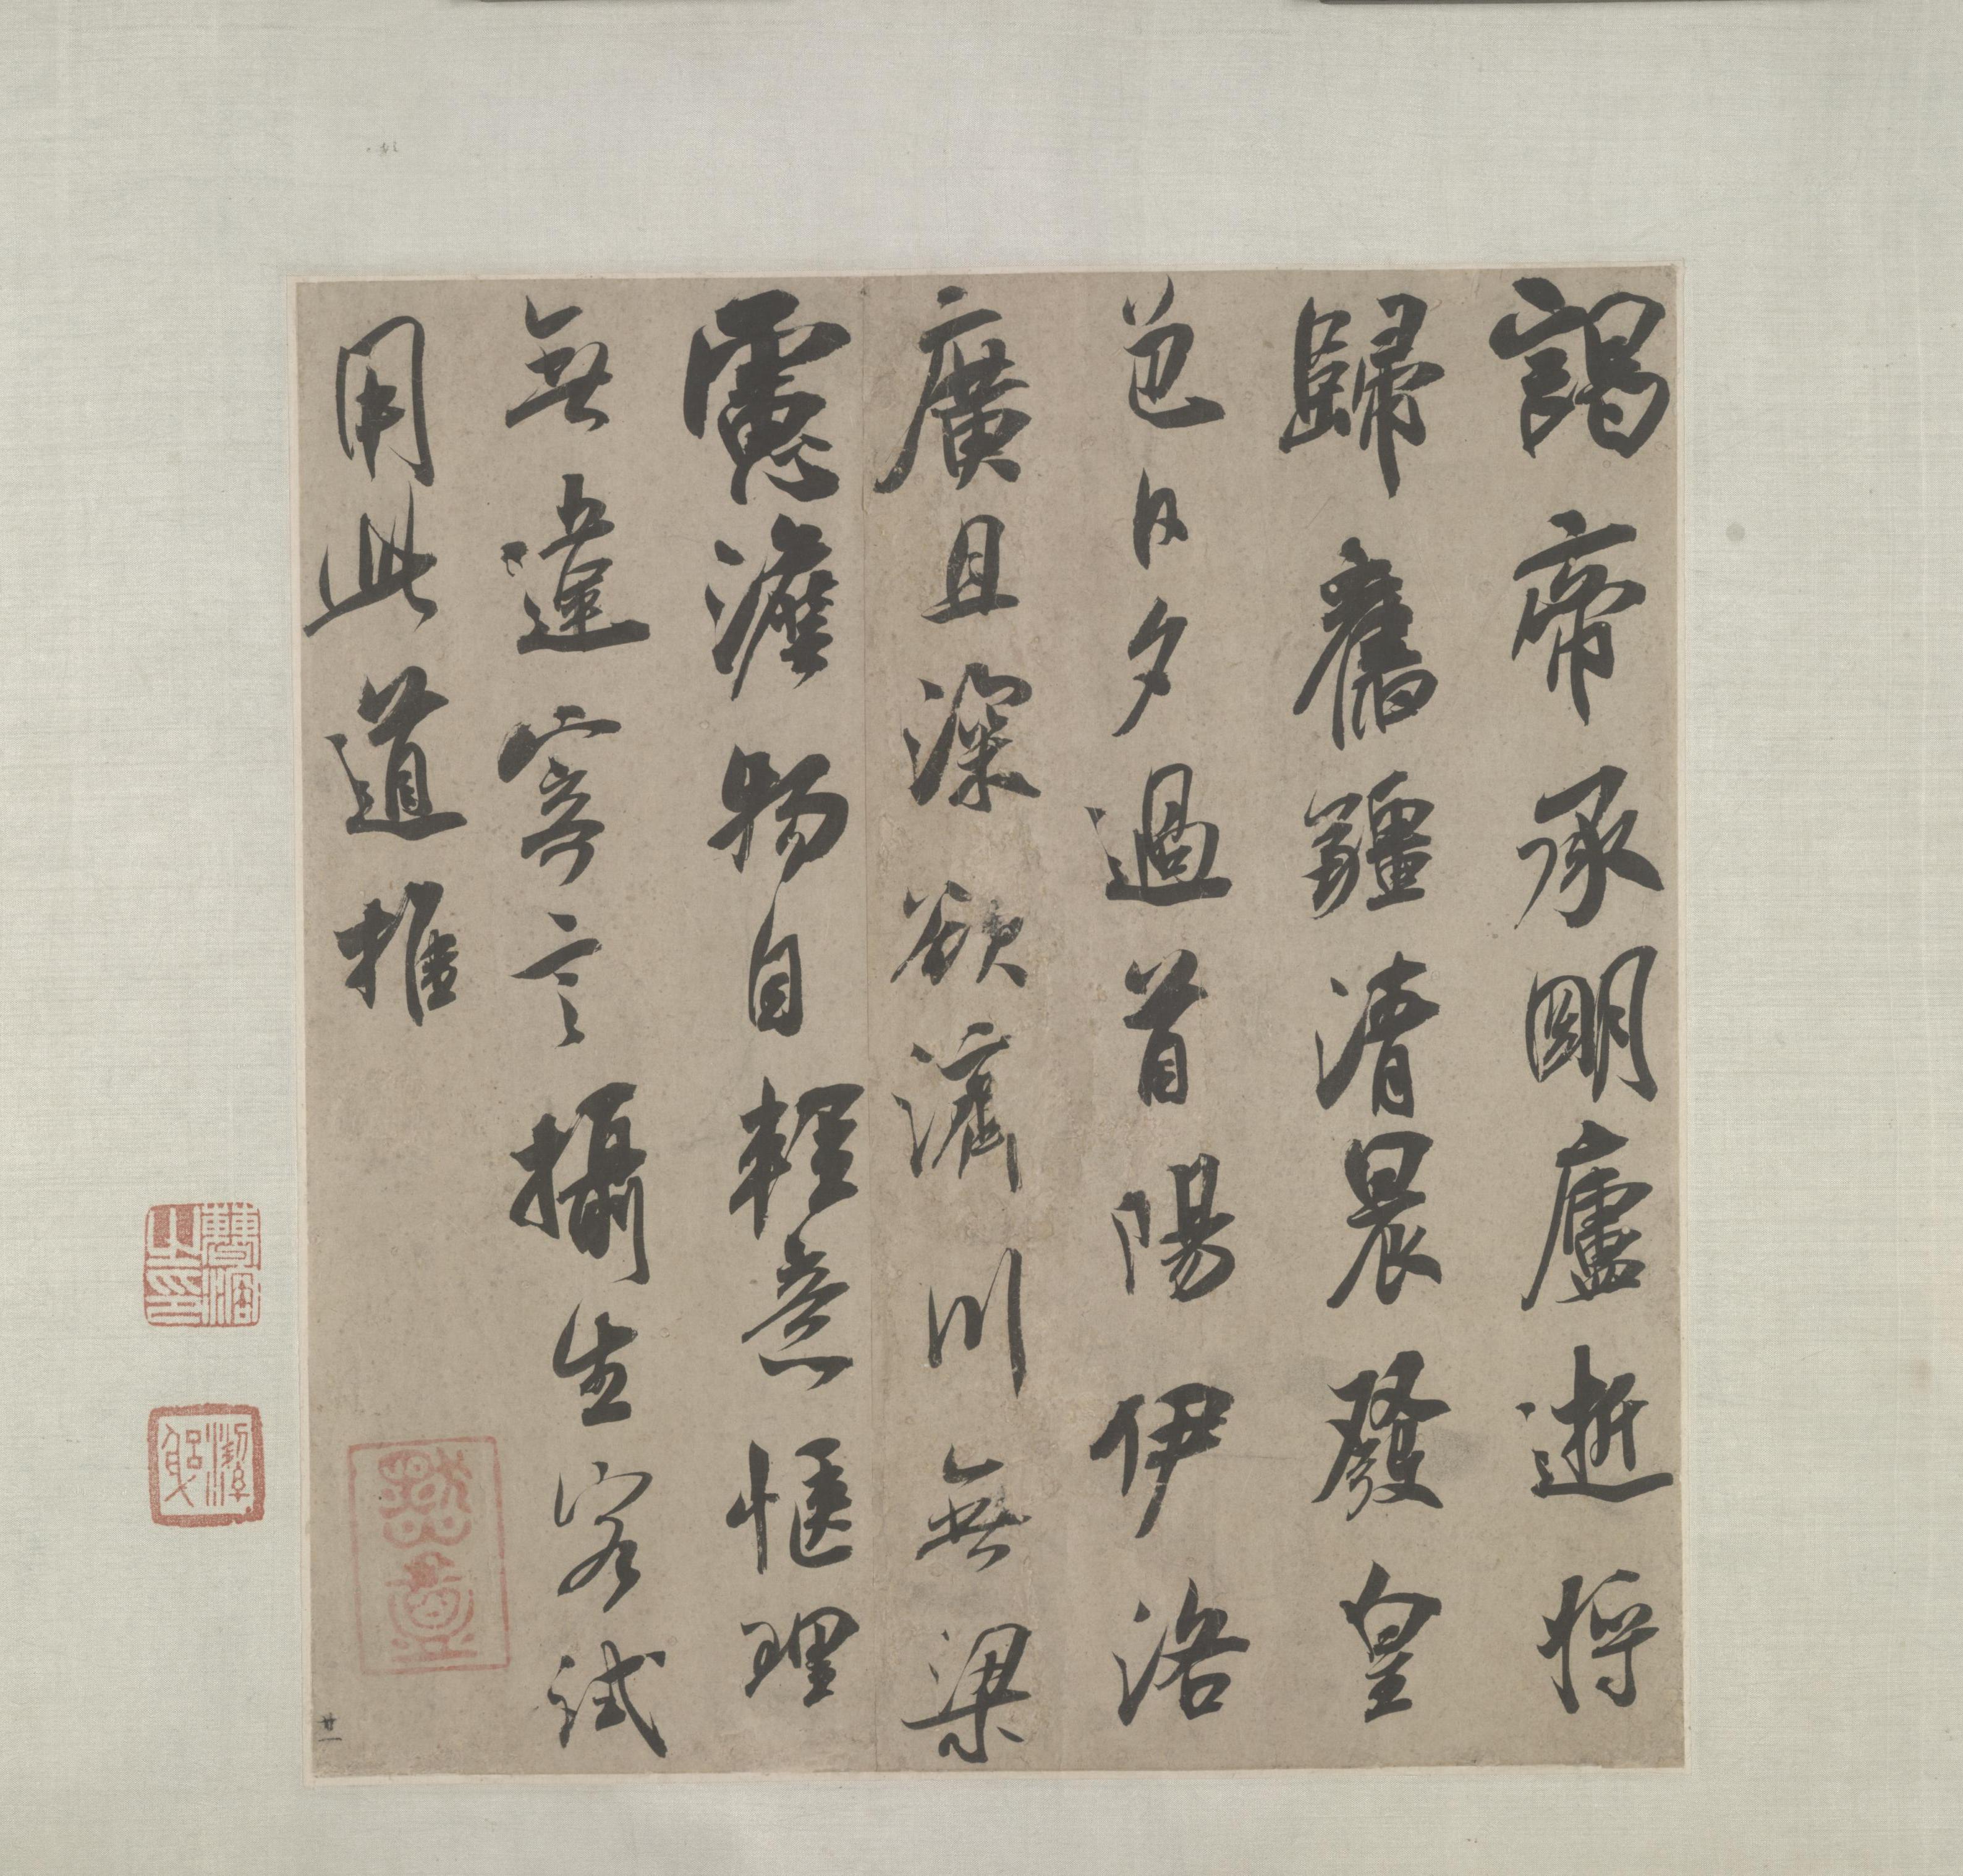 謁帝承明廬逝将
歸舊疆清晨發皇
邑日夕過首陽伊洛
廣且深欲濟川無梁
慮澹物自輕意愜理
無違寄言攝生客試
用此道推
廿一